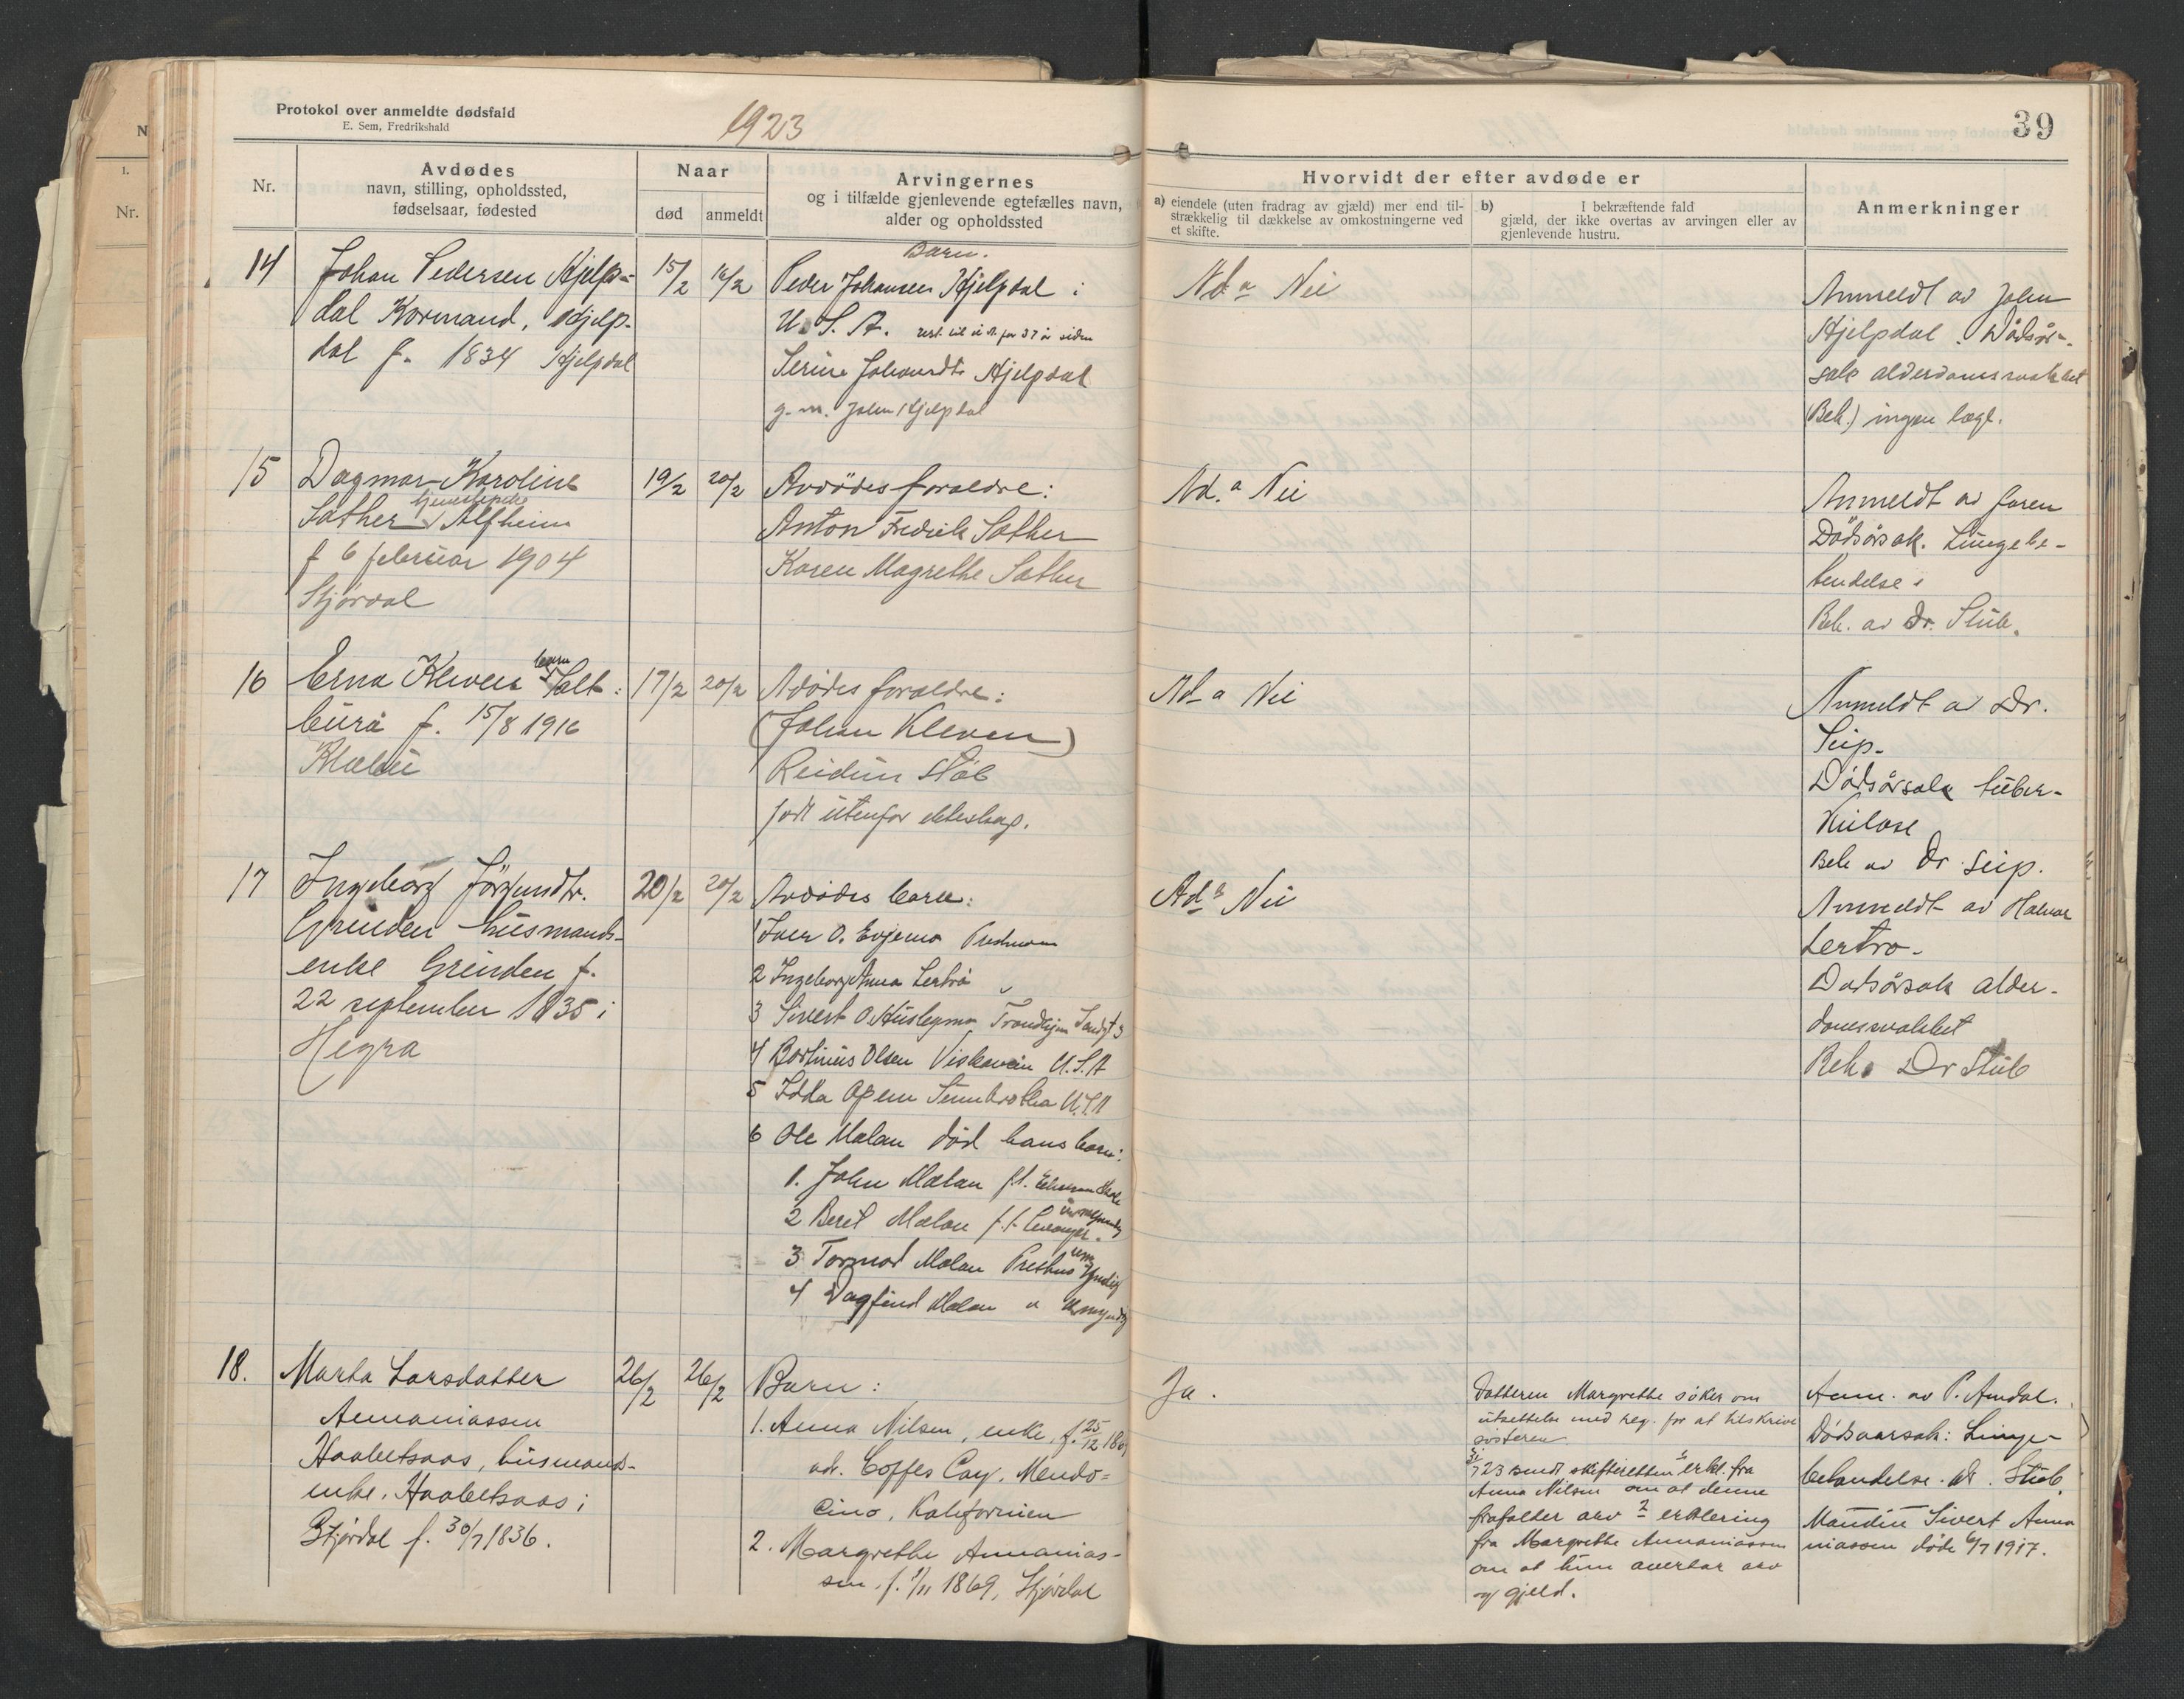 Protokol over anmeldte dødsfald
E. Sem, Fredrikshald
1923
39
Nr.
Avdødes
navn, stilling, opholdssted,
fødselsaar, fødested
Naar
død
anmeldt
Arvingernes
og i tilfælde gjenlevende egtefælles navn,
alder og opholdssted
Hvorvidt der efter avdøde er
a) eiendele (uten fradrag av gjæld) mer end til-
strækkelig til dækkelse av omkostningerne ved
et skifte.
b) I bekræftende fald
gjæld, der ikke overtas av arvingen eller av
gjenlevende hustru.
Anmerkninger
14
Johan Pedersen Hjelp=
dal Kormand, Hjelp-
dal f. 1834 Hjelpdal
15/2
16/2
Barn.
Peder Johansen Hjelpdal i
U. S. A. for 37 år siden
Serine Johansdtr Hjelpdal
g. m. John Hjelpdal
Ad a Nei
Anmeldt av John
Hjelpdal. Dödsår-
sak alderdomssvakhet
Beh.) ingen læge.
15
Dagmar Karoline
tjenestepike
Sæther Alfheim
f 6 februar 1904
Stjørdal
19/2
20/2
Avdødes forældre:
Anton Fredrik Sæther
Karen Magrethe Sæther
Ad. a Nei
Anmeldt av faren
Dödsårsak. Lungebe-
tendelse
Beh. av Dr. Stub.
16
barn
Erna Kleven Salt-
burå f. 15/8 1916
Klæbu
17/2
20/2
Avdødes forældre:
(Johan Kleven)
Reidun Støb
født utenfor ekteskap.
Ad a Nei
Anmeldt av Dr.
Seip.
Dödsårsak tuber-
kulose
Beh av Dr Seip.
17
Ingeborg Jörgundtr.
Grinden husmands-
enke Grinden f.
22 september 1835 i
Hegra
20/2
20/2
Avdödes barn:
1 Iver O. Evjemo
2 Ingeborg Anna Lertrö
3 Sivert O. Trondhjem
4 Bortinius Olsen U.S.A
5 U.S.A
6 Ole Mælan död hans barn:
1. John Mælan
2 Beret Mælan
3 Tormod Mælan umyndig
4 Dagfind Mælan umyndig
Ad a Nei
Anmeldt av Halvor
Lertrö.
Dødsårsak alder-
domssvakhet
Beh. Dr Stub
18.
Marta Larsdatter
Annaniassen
Haabetsaas, husmands-
enke. Haabetsaas i
Stjørdal f. 30/7 1836.
26/2
26/2
Barn:
1. Anna Nilsen, enke, f. 25/12
adr. Coffes Cay. Mendo=
cino, Kalifornien
2. Margrethe Annanias-
sen f. 1/11 1869, Stjørdal
Ja.
Datteren Margrethe søker om
utsettelse med reg. for at tilskrive
søsteren.
23 sendt skifteretten erkl. fra
Anna Nilsen om at denne
frafalder arv 2 erklering
fra Margrethe Annaniassen
om at hun overtar arv
og gjeld.
Anm. av P. Amdal.
Dödsaarsak: Lunge-
betendelse. dr. Stub.
Manden Sivert Anna
niassen døde 6/7 1917.